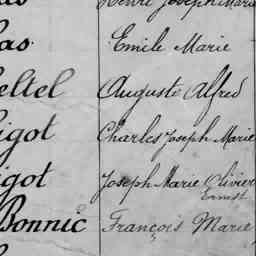 Henri Joseph Marie
as Emile Marie
eltel Auguste Alfred
igot Charles Joseph Marie
igot Joseph Marie Olivier
Ernest
Bonnic François Marie